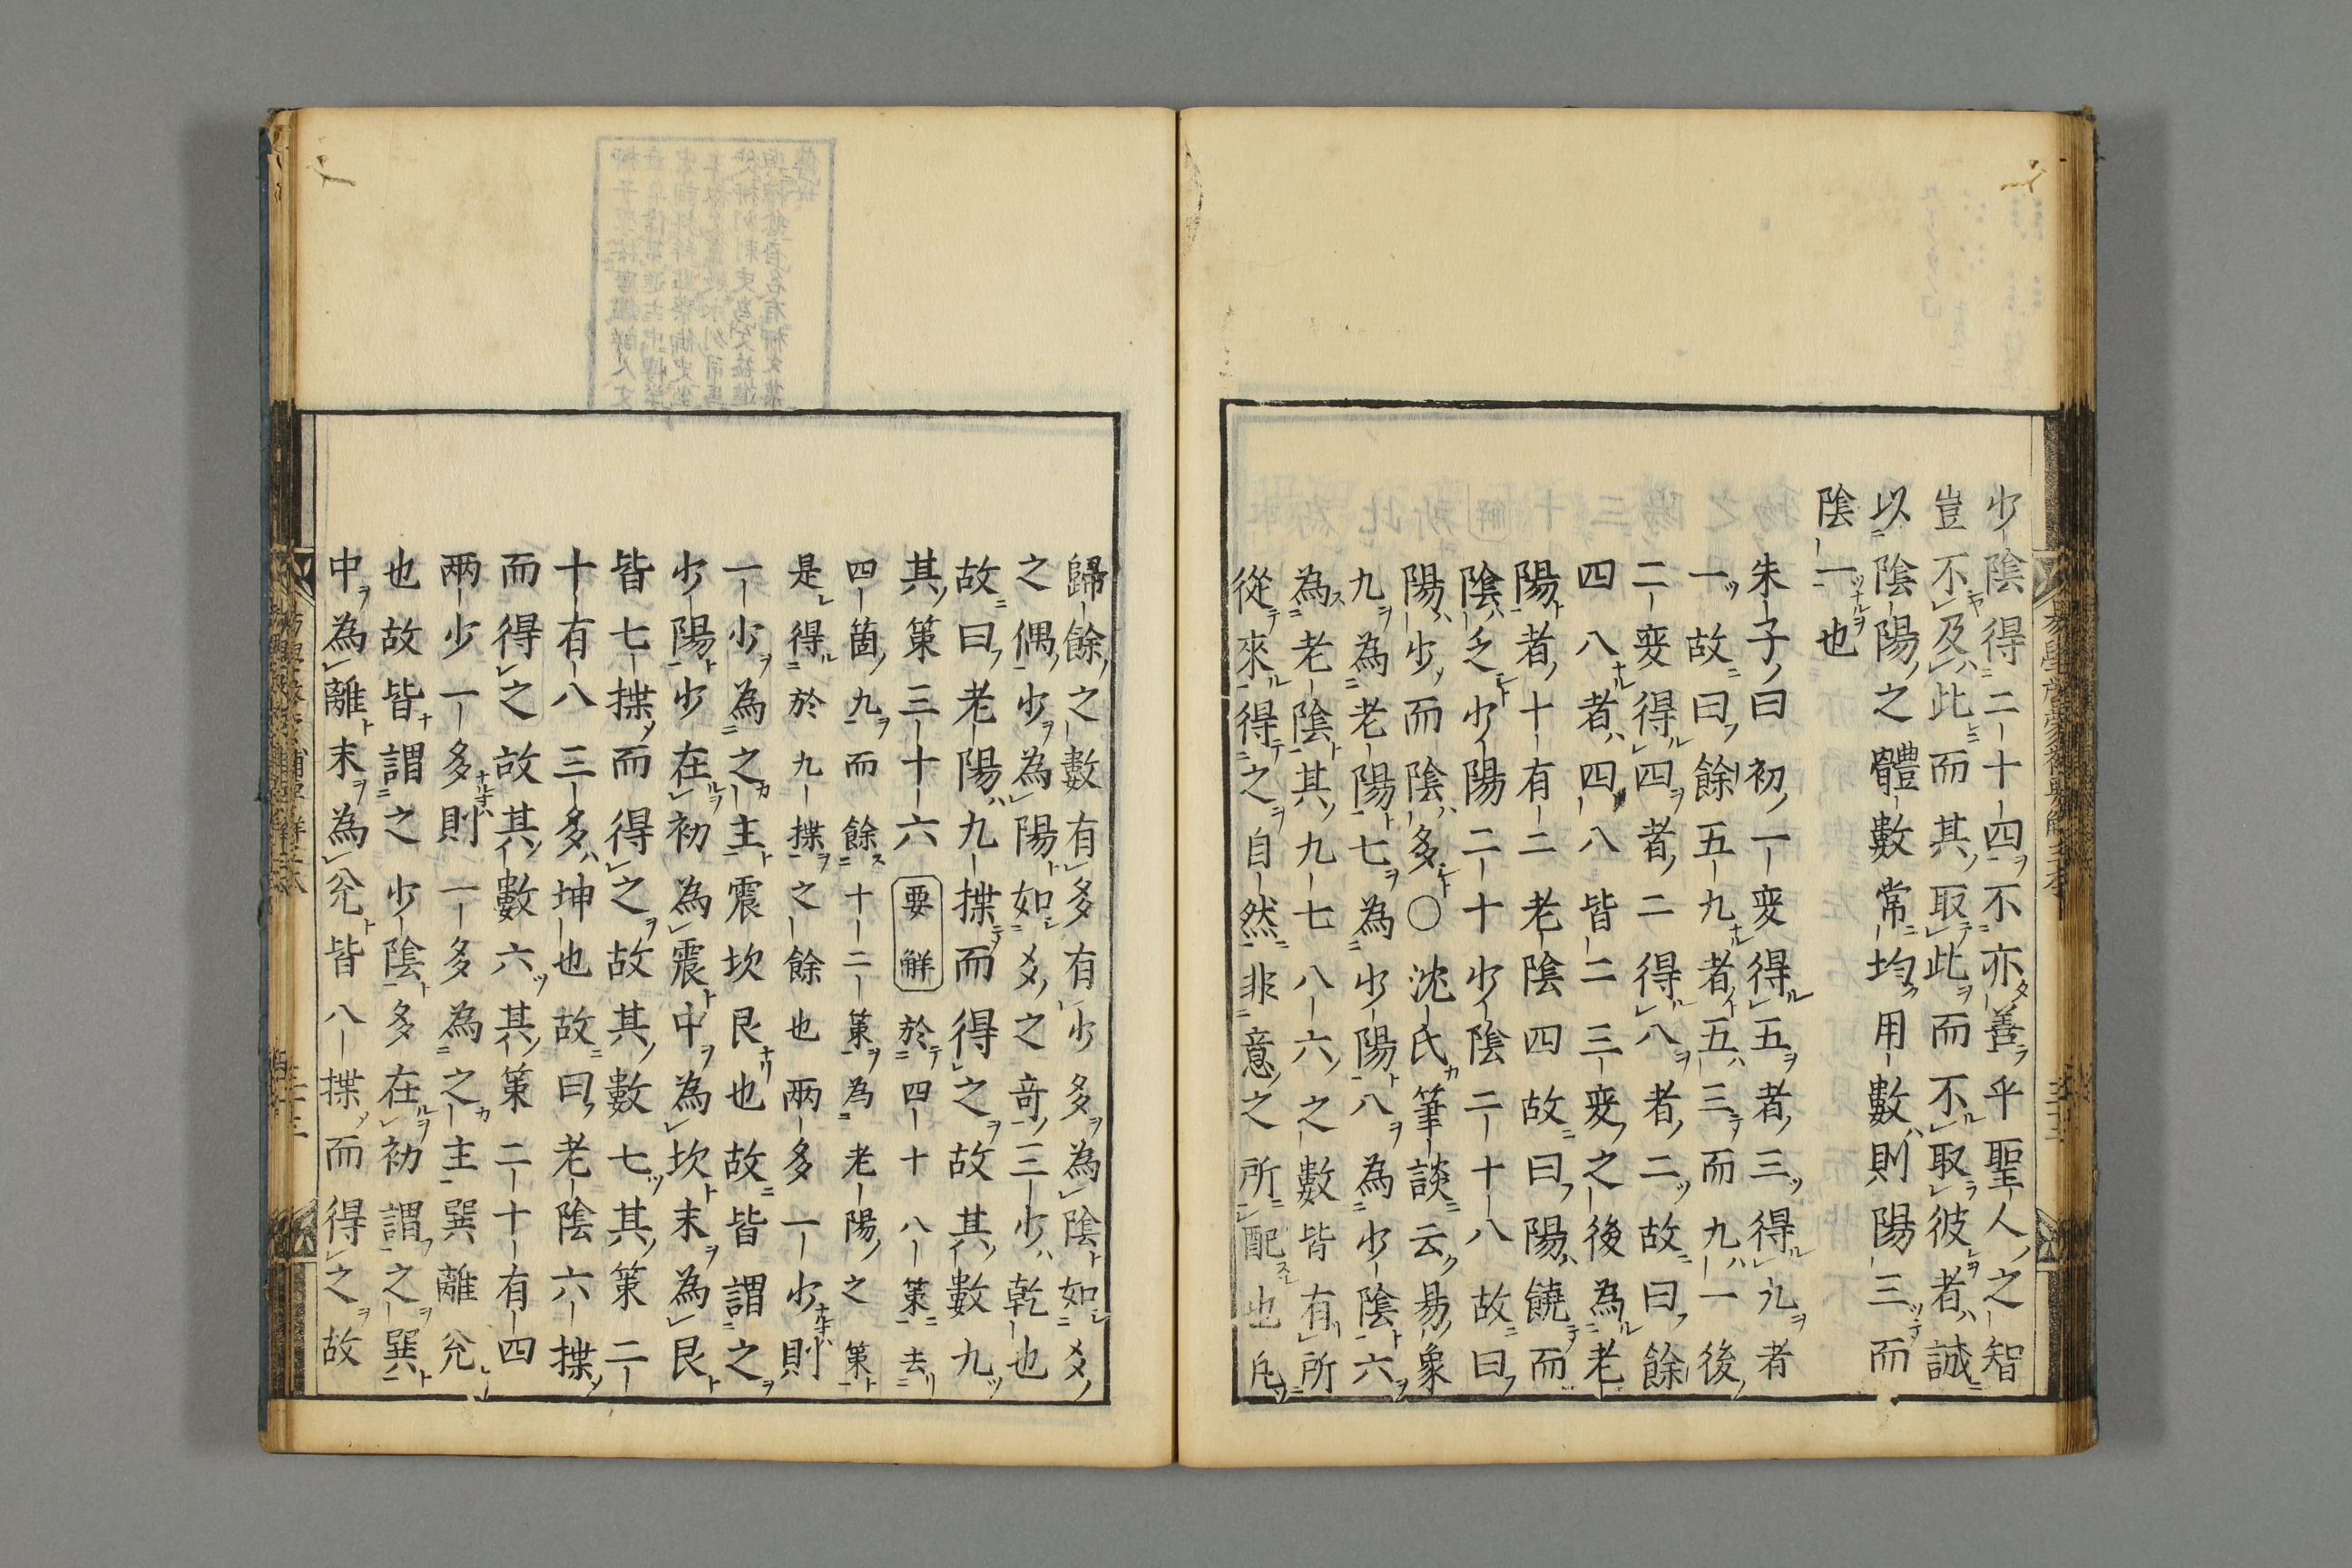 少陰得二十四不亦善乎聖人之智
豈不及此而其取此而不取彼者誠
以陰陽之體數常均用數則陽三而
陰一也
朱子曰初一変得五者三得九者
一故曰餘五九者五三而九一後
二変得四者二得八者二故曰餘
四八者四八皆二三変之後為老
陽者十有二老陰四故曰陽饒而
陰乏少陽二十少陰二十八故曰
陽少而陰多〇沈氏筆談云易象
九為老陽七為少陽八為少陰六
為老陰其九七八六之數皆有所
從來得之自然非意之所配也凡
歸餘之數有多有少多為陰如爻
之偶少為陽如爻之竒三少乾也
故曰老陽九揲而得之故其數九
其策三十六要解於四十八策去
四箇九而餘十二策為老陽之策
是得於九揲之餘也兩多一少則
一少為之主震坎艮也故皆謂之
少陽少在初為震中為坎末為艮
皆七揲而得之故其數七其策二
十有八三多坤也故曰老陰六揲
而得之故其數六其策二十有四
兩少一多則一多為之主巽離兊
也故皆謂之少陰多在初謂之巽
中為離末為兊皆八揲而得之故